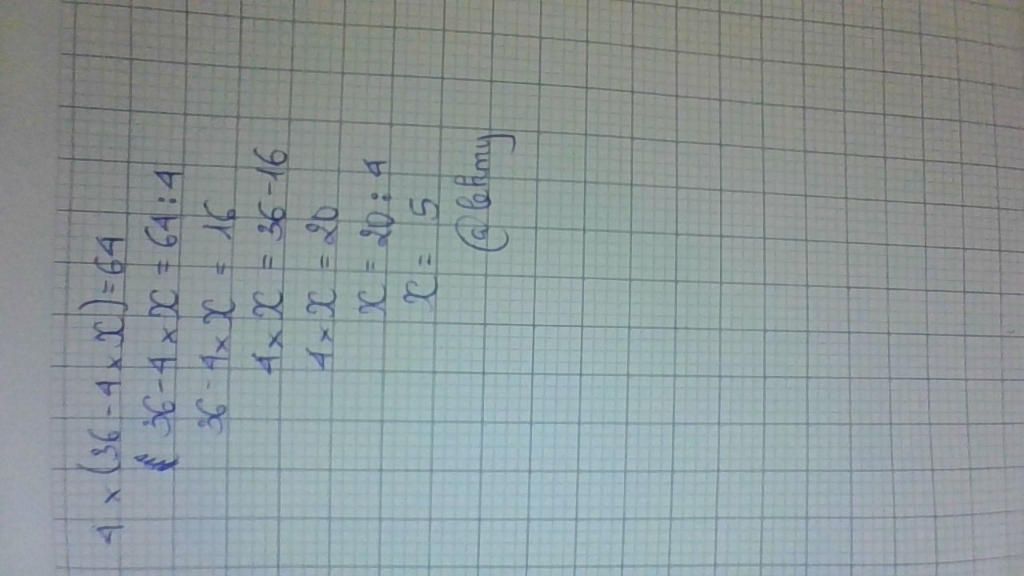 4 × (36 - 4 × x) = 64
36 - 4 × x = 64 : 4
36 - 4 × x = 16
4 × x = 36 - 16
4 × x = 20
x = 20 : 4
x = 5